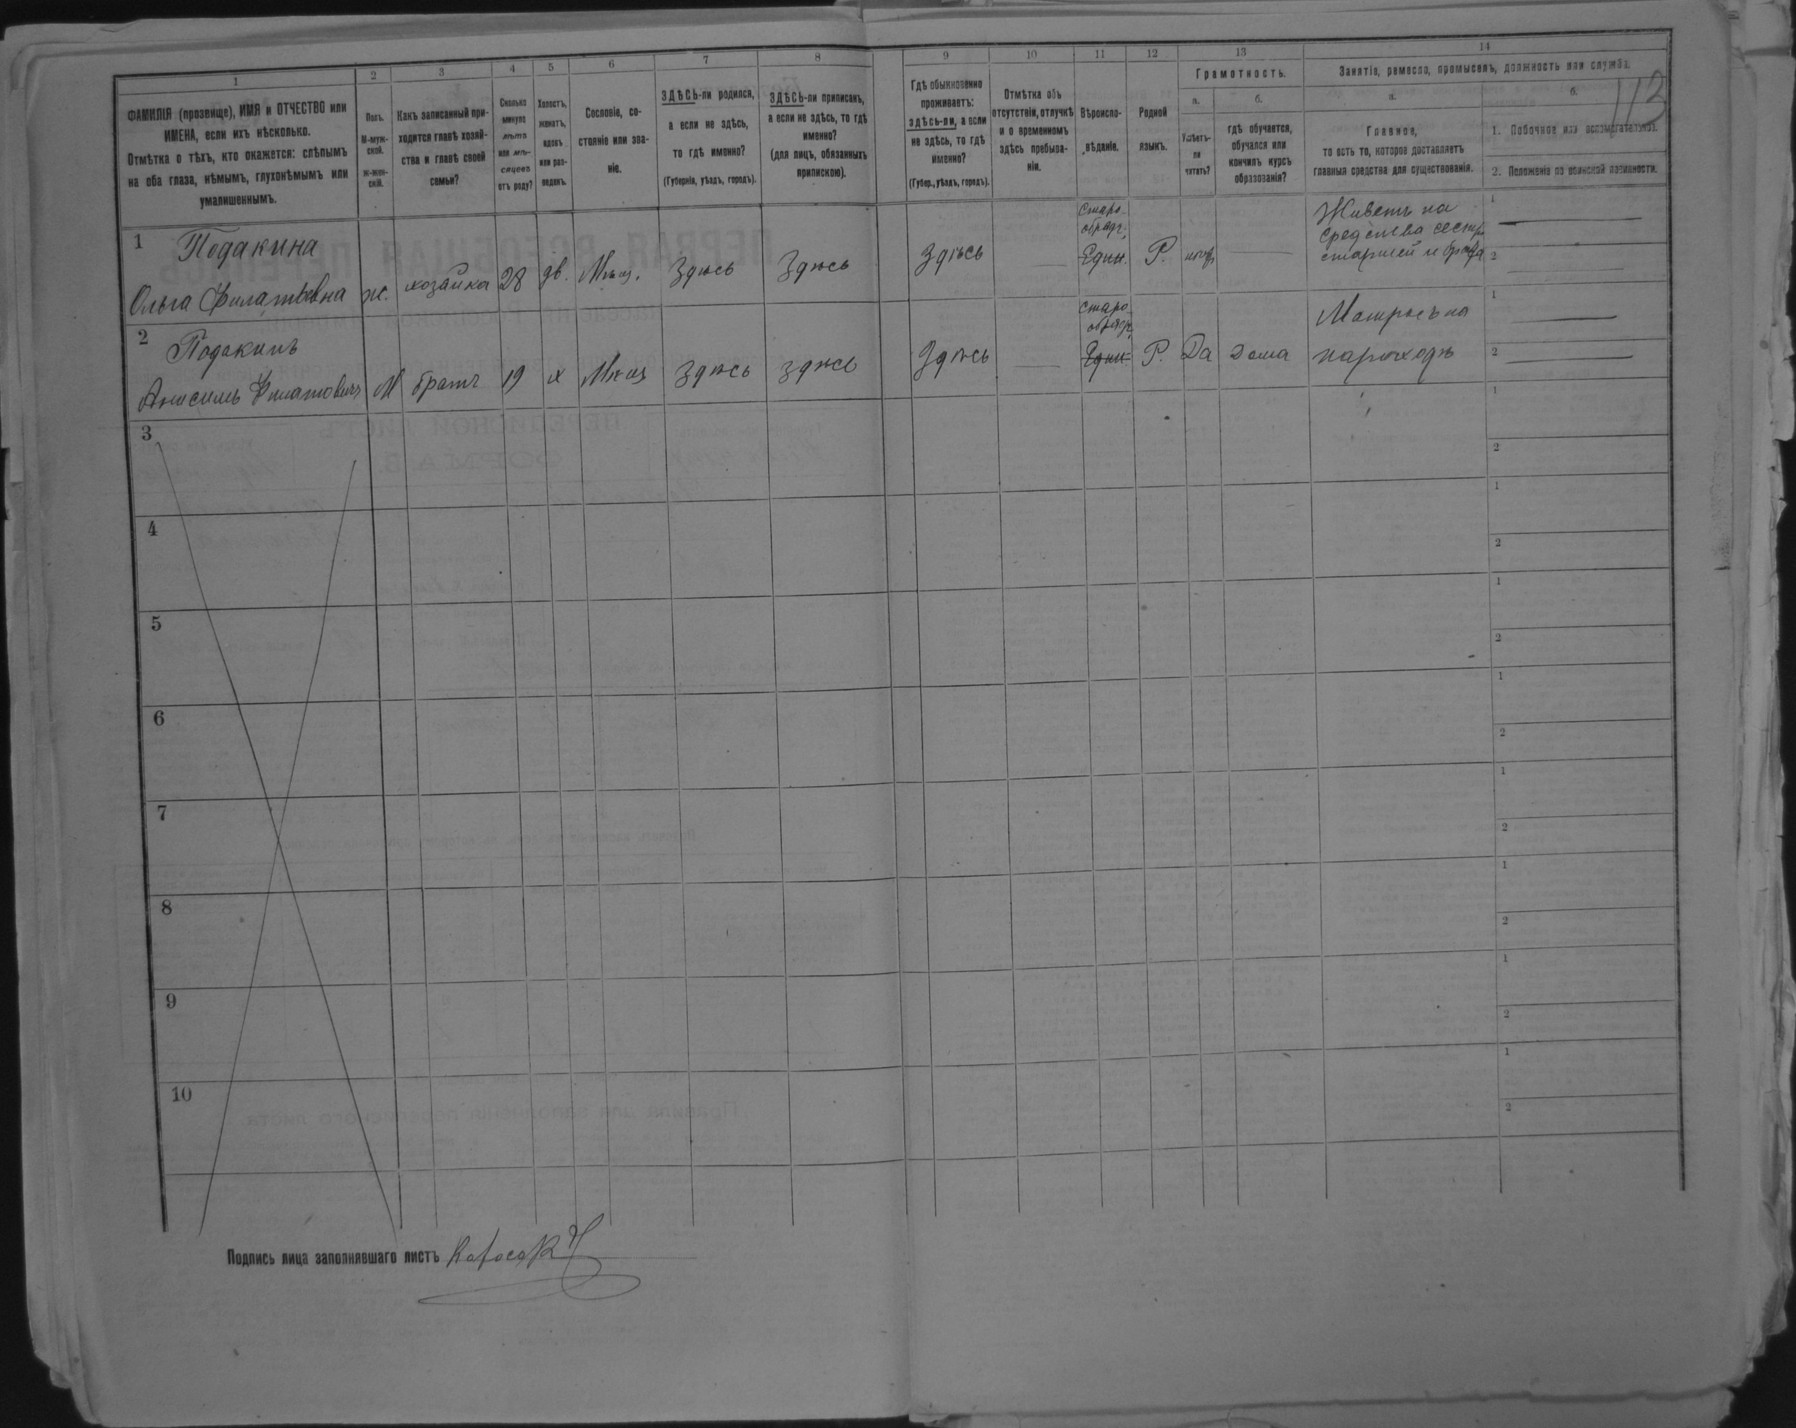 113
1 2 3 4 5 6 7 8 9 10 11 12 13 14
ФАМИЛІЯ (прозвище), ИМЯ и ОТЧЕСТВО или
ИМЕНА, если ихъ нѣсколько.
Отмѣтка о тѣхъ, кто окажется: слѣпымъ
на оба глаза, нѣмымъ, глухонѣмымъ или
умалишеннымъ.
Полъ.
М-муж-
ской.
ж-жен-
скій.
Какъ записанный при-
ходится главѣ хозяй-
ства и главѣ своей
семьи?
Сколько
минуло
лѣтъ
или мѣ-
сяцевъ
отъ роду?
Холостъ,
женатъ,
вдовъ
или раз-
веденъ.
Сословіе, со-
стояніе или зва-
ніе.
ЗДѢСЬ-ли родился,
а если не здѣсь,
то гдѣ именно?
(Губернія, уѣздъ, городъ).
ЗДѢСЬ-ли приписанъ,
а если не здѣсь, то гдѣ
именно?
(для лицъ, обязанныхъ
припискою).
Гдѣ обыкновенно
проживаетъ:
здѣсь-ли, а если
не здѣсь, то гдѣ
именно?
(Губер., уѣздъ, городъ).
Отмѣтка объ
отсутствіи, отлучкѣ
и о временномъ
здѣсь пребыва-
ніи.
Вѣроиспо-
вѣданіе.
Родной
языкъ.
Грамотность.
а.
Умѣетъ-
ли
читать?
б.
гдѣ обучается,
обучался или
кончилъ курсъ
образованія?
Занятіе, ремесло, промыселъ, должность или служба.
а.
Главное,
то есть то, которое доставляетъ
главныя средства для существованія.
б.
1. Побочное или вспомогательное.
2. Положеніе по воинской повинности.
1 Подакина
Ольга Филатьевна ж. хозяйка 28 дв. Мѣщ. Здѣсь Здѣсь Здѣсь
Старо-
обрядч.
Един. Р.
Живетъ на
средства сестры
старшей и брата
1
2
2 Подакинъ
Анисимъ Филатовичъ М братъ 19 х Мѣщ Здѣсь Здѣсь Здѣсь
Старо-
обрядч.
Един. Р. Да дома
Матросъ на
пароходѣ
1
2
3
1
2
4
1
2
5
1
2
6
1
2
7
1
2
8
1
2
9
1
2
10
1
2
Подпись лица заполнявшаго листъ